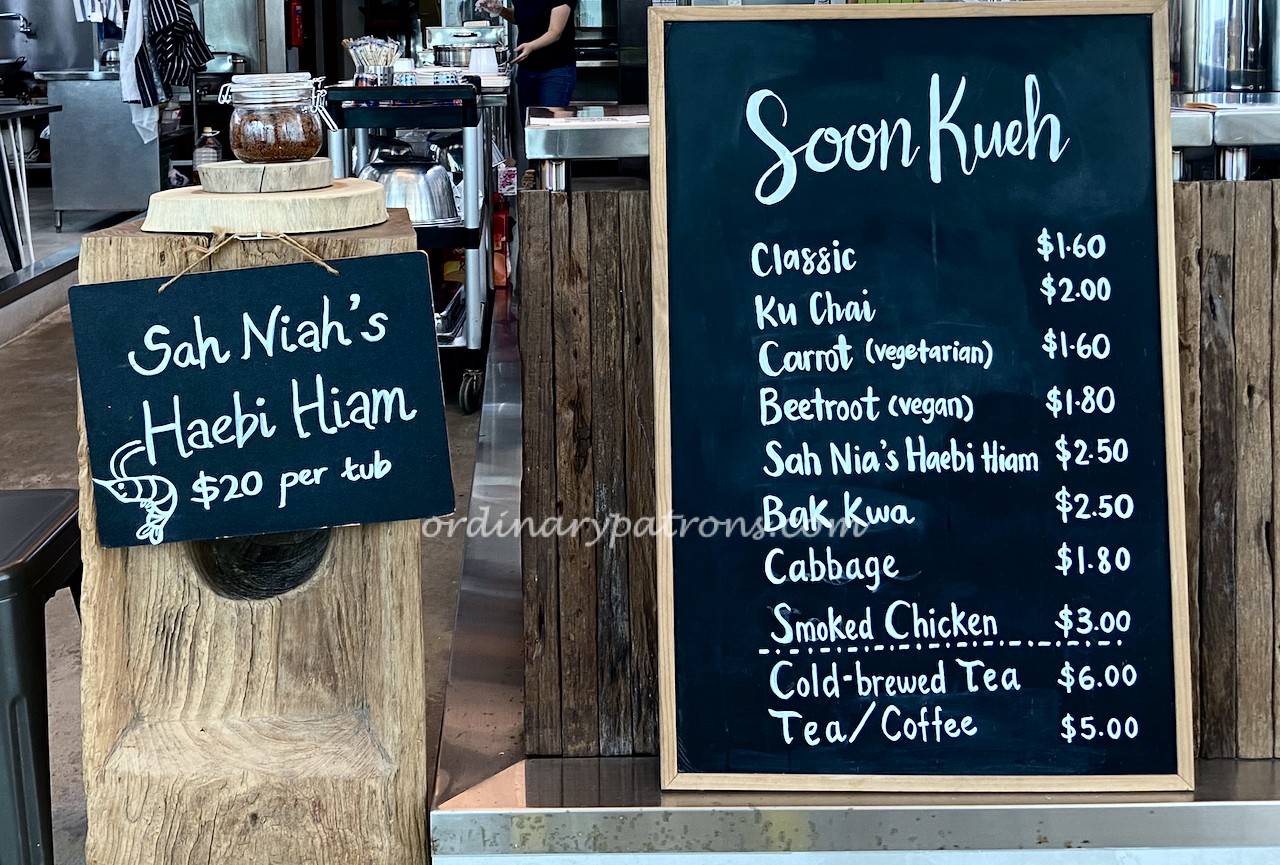 Sah Niah's
Haebi Hiam
$20 per tub
Soon Kueh
Classic $1.60
Ku Chai $2.00
Carrot (vegetarian) $1.60
Beetroot (vegan) $1.80
Sah Nia's Haebi Hiam $2.50
Bak Kwa $2.50
Cabbage $1.80
Smoked Chicken $3.00
Cold-brewed Tea $6.00
Tea/Coffee $5.00
ordinarypatrons.com